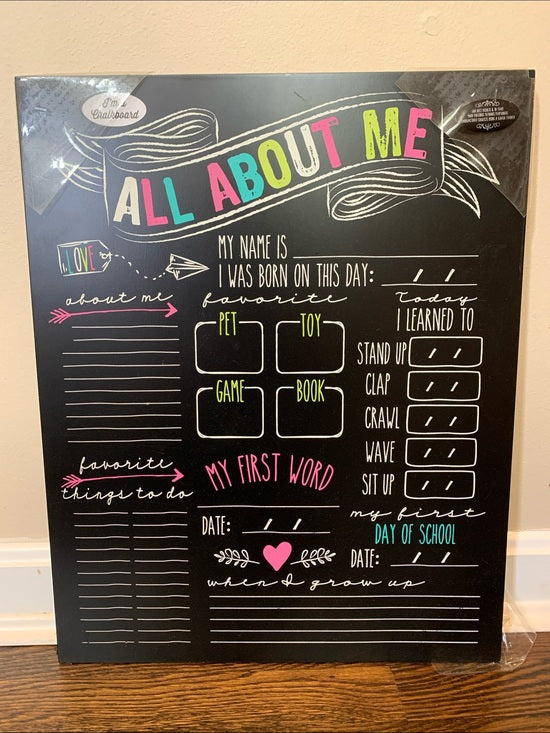 I'm a
Chalkboard
ALL ABOUT ME
LOVE
MY NAME IS
I WAS BORN ON THIS DAY: / /
about me
favorite
PET
TOY
GAME
BOOK
Today
I LEARNED TO
STAND UP / /
CLAP / /
CRAWL / /
WAVE / /
SIT UP / /
favorite
things to do
MY FIRST WORD
DATE: / /
my first
DAY OF SCHOOL
DATE: / /
when I grow up